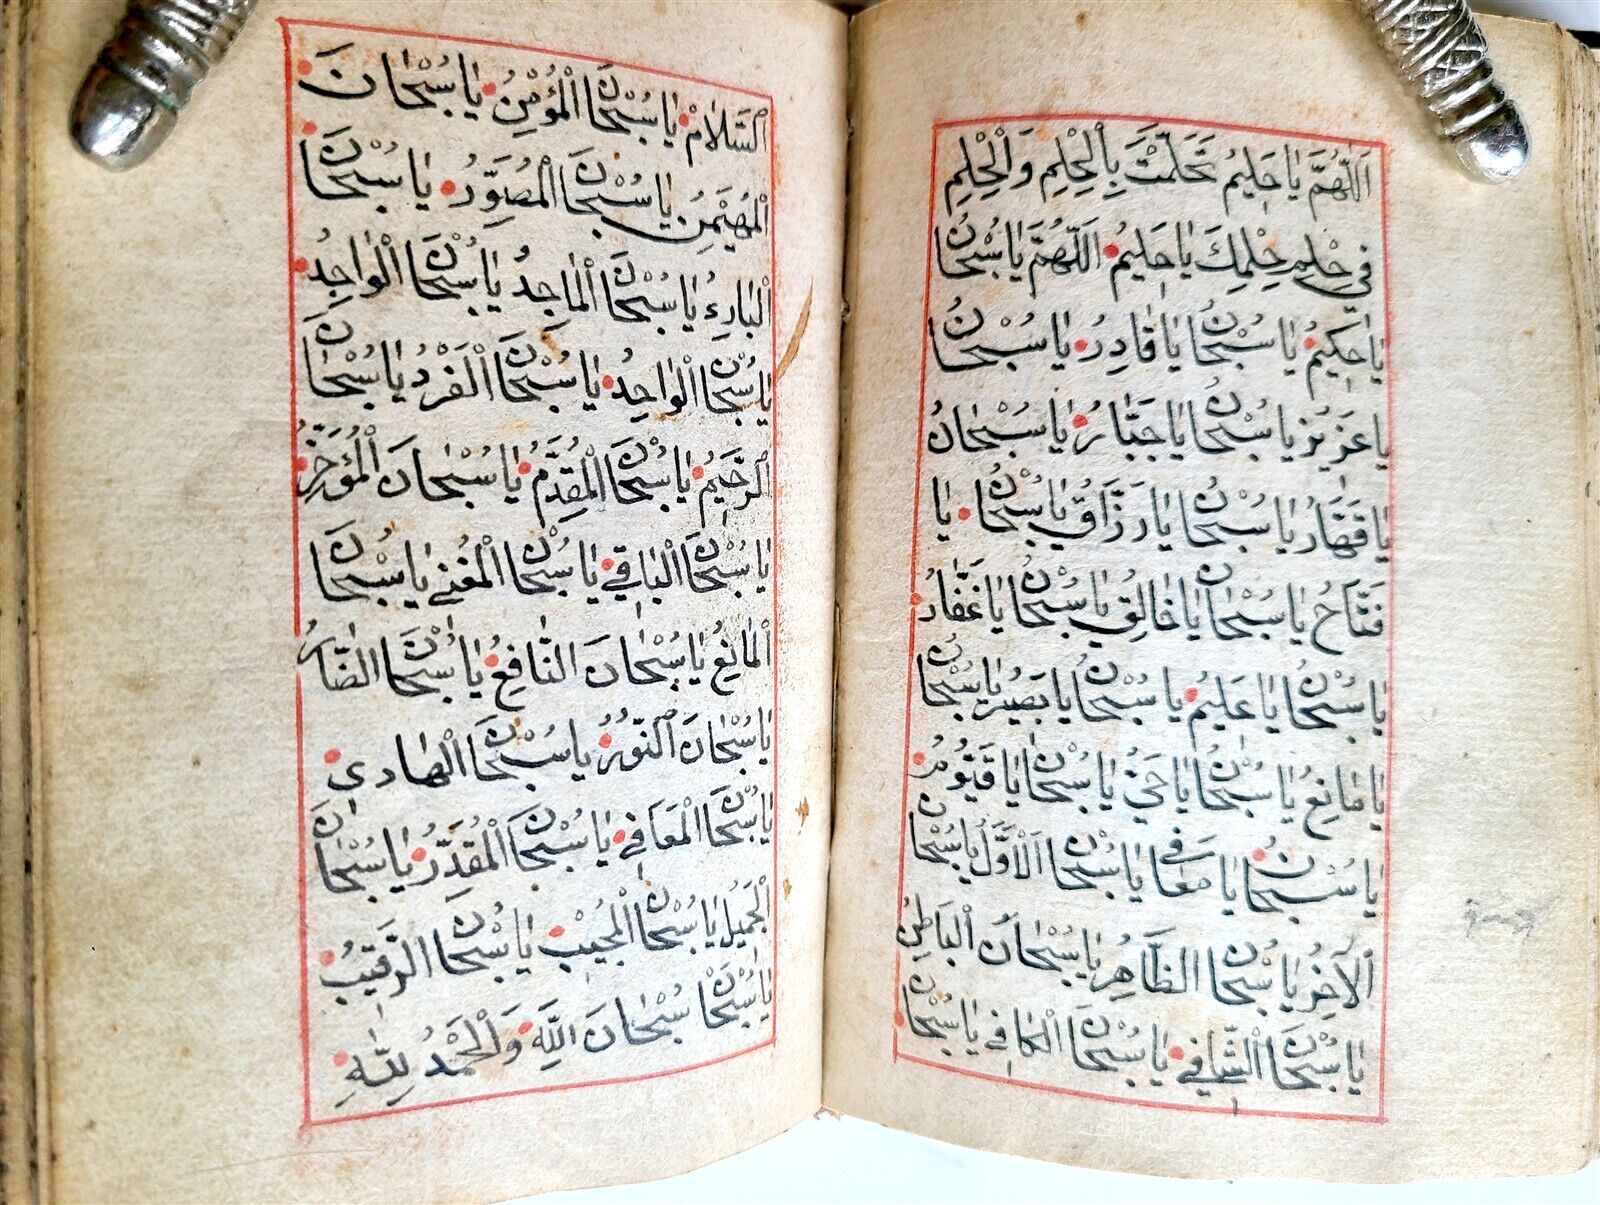 اَللّٰهُمَّ يَا حَلِيمُ تَحَلَّمْتَ بِالْحِلْمِ وَالْحِلْمِ
فِي حِلْمِ حِلْمِكَ يَا حَلِيمُ اَللّٰهُمَّ يَا سُبْحَانُ
يَا حَكِيمُ يَا سُبْحَانُ يَا قَادِرُ يَا سُبْحَانُ
يَا عَزِيزُ يَا سُبْحَانُ يَا جَبَّارُ يَا سُبْحَانُ
يَا قَهَّارُ يَا سُبْحَانُ يَا رَزَّاقُ يَا سُبْحَانُ يَا
فَتَّاحُ يَا سُبْحَانُ يَا خَالِقُ يَا سُبْحَانُ يَا غَفَّارُ
يَا سُبْحَانُ يَا عَلِيمُ يَا سُبْحَانُ يَا بَصِيرُ يَا سُبْحَانُ
يَا مَانِعُ يَا سُبْحَانُ يَا حَيُّ يَا سُبْحَانُ يَا قَيُّومُ
يَا سُبْحَانُ يَا مُعَافِي يَا سُبْحَانَ الْاَوَّلُ يَا سُبْحَانَ
الْآخِرُ يَا سُبْحَانَ الظَّاهِرُ يَا سُبْحَانَ الْبَاطِنُ
يَا سُبْحَانَ الشَّافِي يَا سُبْحَانَ الْكَافِي يَا سُبْحَانَ
السَّلَامُ يَا سُبْحَانَ الْمُؤْمِنُ يَا سُبْحَانَ
الْمُهَيْمِنُ يَا سُبْحَانَ الْمُصَوِّرُ يَا سُبْحَانَ
الْبَارِئُ يَا سُبْحَانَ الْمَاجِدُ يَا سُبْحَانَ الْوَاجِدُ
يَا سُبْحَانَ الْوَاحِدُ يَا سُبْحَانَ الْفَرْدُ يَا سُبْحَانَ
الرَّحِيمُ يَا سُبْحَانَ الْمُقَدِّمُ يَا سُبْحَانَ الْمُؤَخِّرُ
يَا سُبْحَانَ الْبَاقِي يَا سُبْحَانَ الْمُغْنِي يَا سُبْحَانَ
الْمَانِعُ يَا سُبْحَانَ النَّافِعُ يَا سُبْحَانَ الضَّارُّ
يَا سُبْحَانَ النُّورُ يَا سُبْحَانَ الْهَادِي
يَا سُبْحَانَ الْمُعَافِي يَا سُبْحَانَ الْمُقَدِّرُ يَا سُبْحَانَ
الْجَمِيلُ يَا سُبْحَانَ الْمُجِيبُ يَا سُبْحَانَ الرَّقِيبُ
يَا سُبْحَانَ سُبْحَانَ اللّٰهِ وَالْحَمْدُ لِلّٰهِ